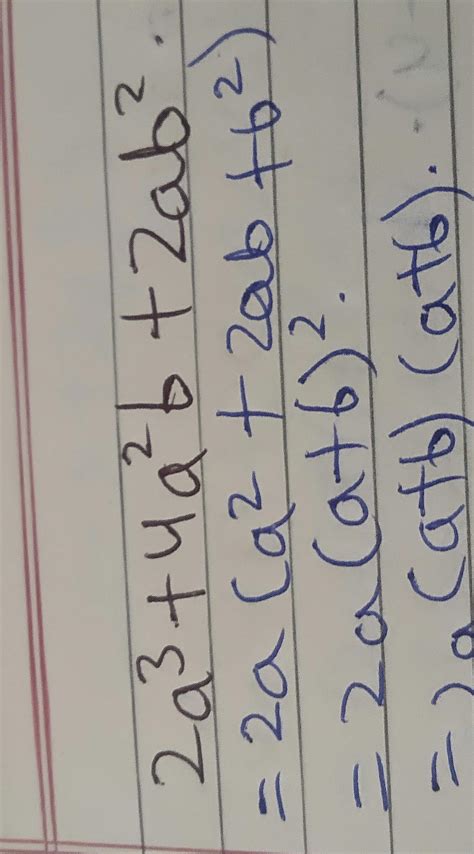 2a³ + 4a²b + 2ab².
= 2a (a² + 2ab + b²)
= 2a (a+b)².
= 2a (a+b) (a+b).